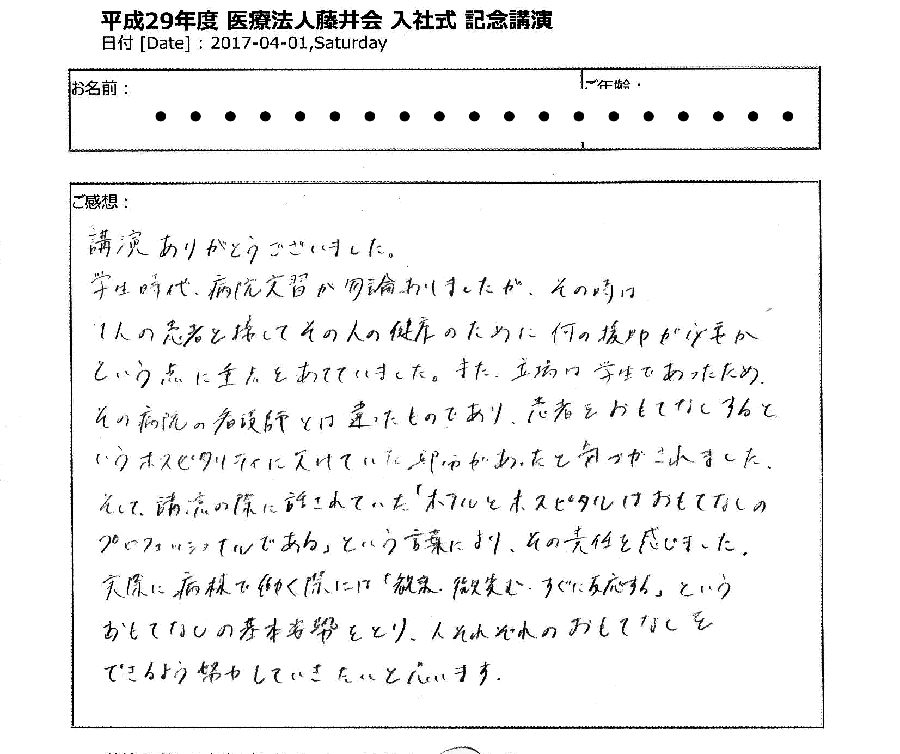 平成29年度 医療法人藤井会 入社式 記念講演
日付 [Date] : 2017-04-01,Saturday
お名前：
ご年齢：
ご感想：
講演ありがとうございました。
学生時代、病院実習が勿論ありましたが、その時は
1人の患者と接してその人の健康のために何の援助が必要か
という点に重点をあてていました。また、立場は学生であったため、
その病院の看護師とは違ったものであり、患者をおもてなしすると
いうホスピタリティに欠けていた部分があったと気づかされました。
そして、講演の際に話されていた「ホテルとホスピタルはおもてなしの
プロフェッショナルである」という言葉により、その責任を感じました。
実際に病棟で働く際には「観察・微笑む・すぐに反応する」という
おもてなしの基本姿勢をとり、人それぞれのおもてなしを
できるよう努力していきたいと思います。